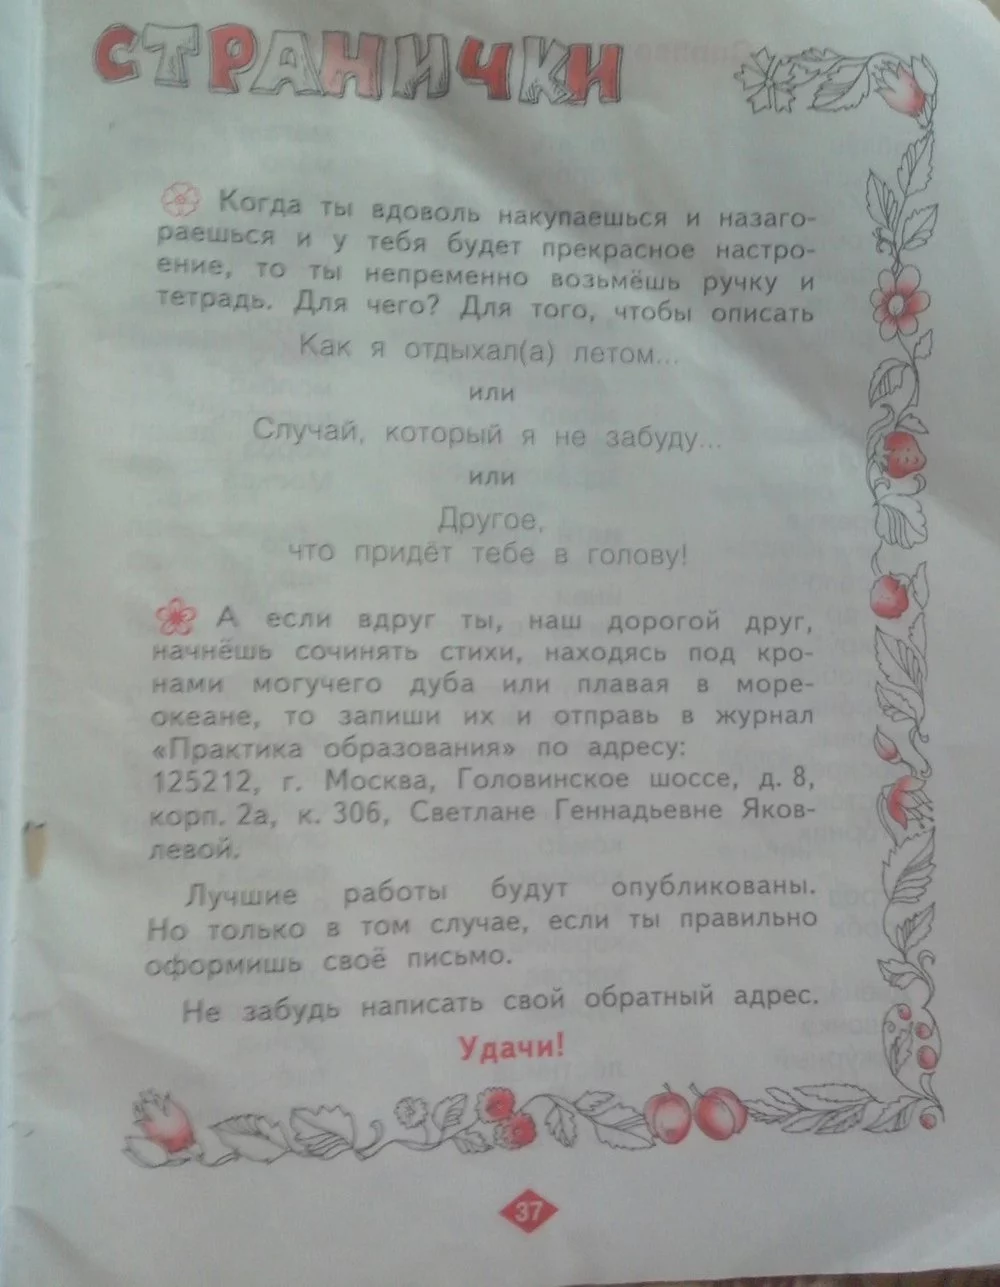 СТРАНИЧКИ
Когда ты вдоволь накупаешься и назаго-
раешься и у тебя будет прекрасное настро-
ение, то ты непременно возьмёшь ручку и
тетрадь. Для чего? Для того, чтобы описать
Как я отдыхал(а) летом...
или
Случай, который я не забуду...
или
Другое,
что придёт тебе в голову!
А если вдруг ты, наш дорогой друг,
начнёшь сочинять стихи, находясь под кро-
нами могучего дуба или плавая в море-
океане, то запиши их и отправь в журнал
«Практика образования» по адресу:
125212, г. Москва, Головинское шоссе, д. 8,
корп. 2а, к. 306, Светлане Геннадьевне Яков-
левой.
Лучшие работы будут опубликованы.
Но только в том случае, если ты правильно
оформишь своё письмо.
Не забудь написать свой обратный адрес.
Удачи!
37